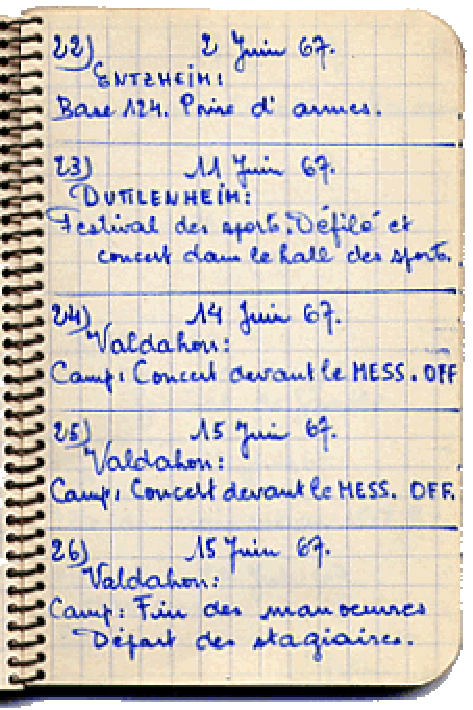 22) 2 Juin 67.
ENTZHEIM:
Base 124. Prise d'armes.
23) 11 Juin 67.
DUTTLENHEIM:
Festival des sports: Défilé et
concert dans le hall des sports.
24) 14 Juin 67.
Valdahon:
Camp: Concert devant le MESS. OFF
25) 15 Juin 67.
Valdahon:
Camp: Concert devant le MESS. OFF.
26) 15 Juin 67.
Valdahon:
Camp: Fin des manoeuvres
Départ des stagiaires.